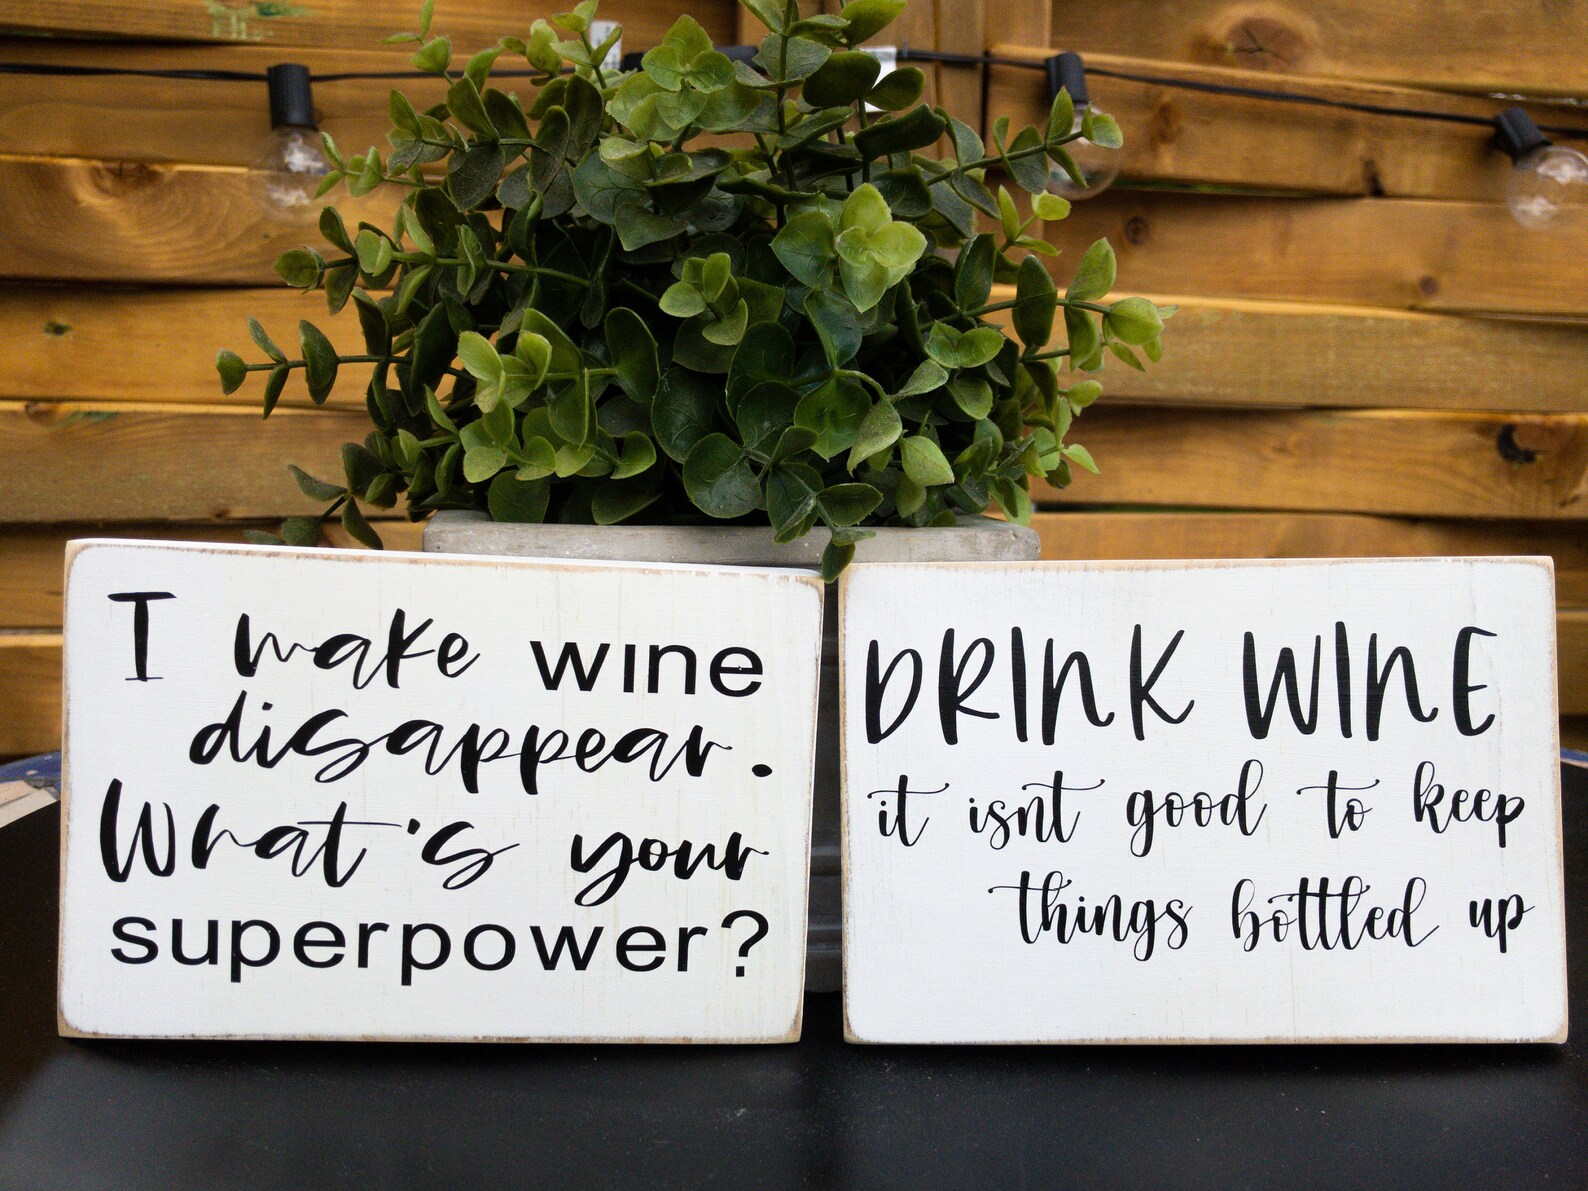 I make wine
disappear.
What's your
superpower?
DRINK WINE
it isnt good to keep
things bottled up